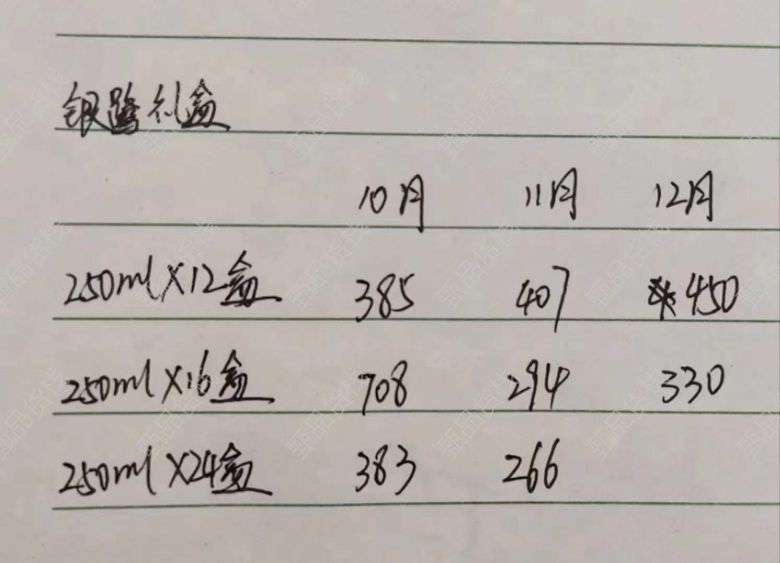 银鹭礼盒
10月 11月 12月
250ml×12盒 385 407 450
250ml×16盒 708 294 330
250ml×24盒 383 266